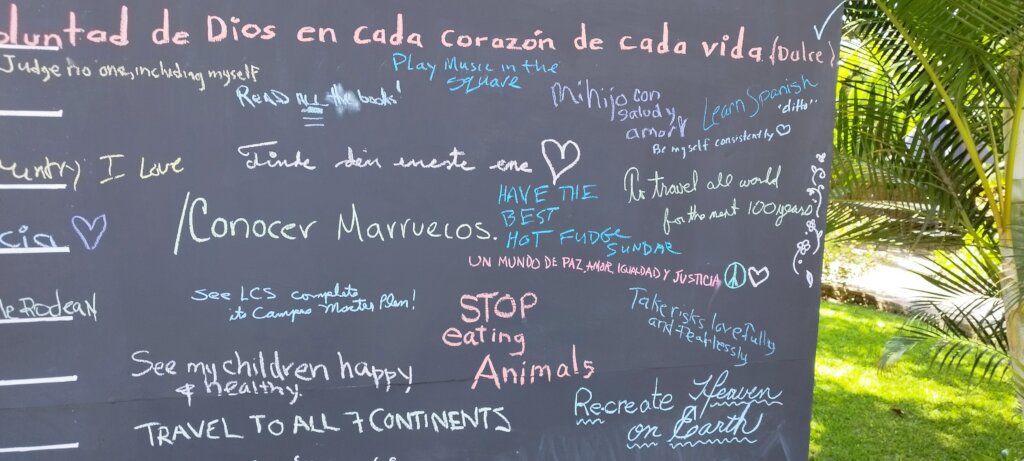 de Dios en cada corazón de cada vida (Dulce)
Judge no one, including myself
Play Music in the
square
Read ALL the books!
Mi hijo con
salud y
amor
Learn Spanish
"ditto"
Be myself consistently
I Love
To travel all world
for the next 100 years
HAVE THE
BEST
HOT FUDGE
SUNDAE
/Conocer Marruecos.
UN MUNDO DE PAZ, AMOR, IGUALDAD Y JUSTICIA
See LCS complete
its Campus Master Plan!
STOP
eating
Animals
Take risks lovefully
and fearlessly
See my children happy
& healthy.
Recreate Heaven
on Earth
TRAVEL TO ALL 7 CONTINENTS